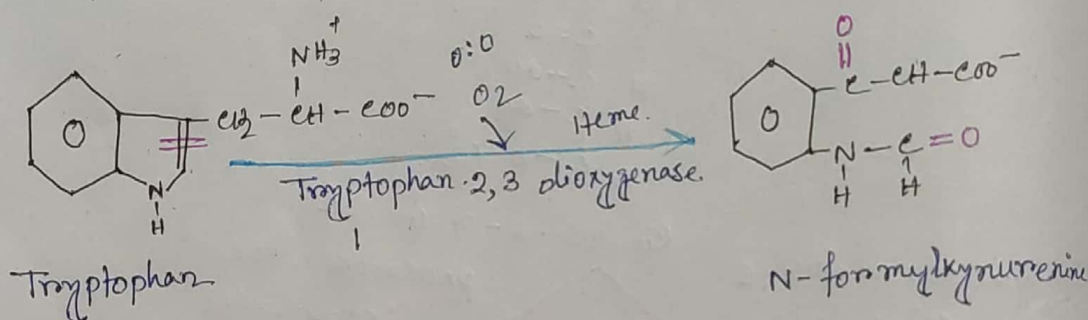 NH3+
CH2 - CH - COO-
O:O
O2
Heme.
Tryptophan 2,3 dioxygenase.
1
O
N
H
Tryptophan
O
C-CH-COO-
O
N-C=O
H
H
N-formylkynurenine